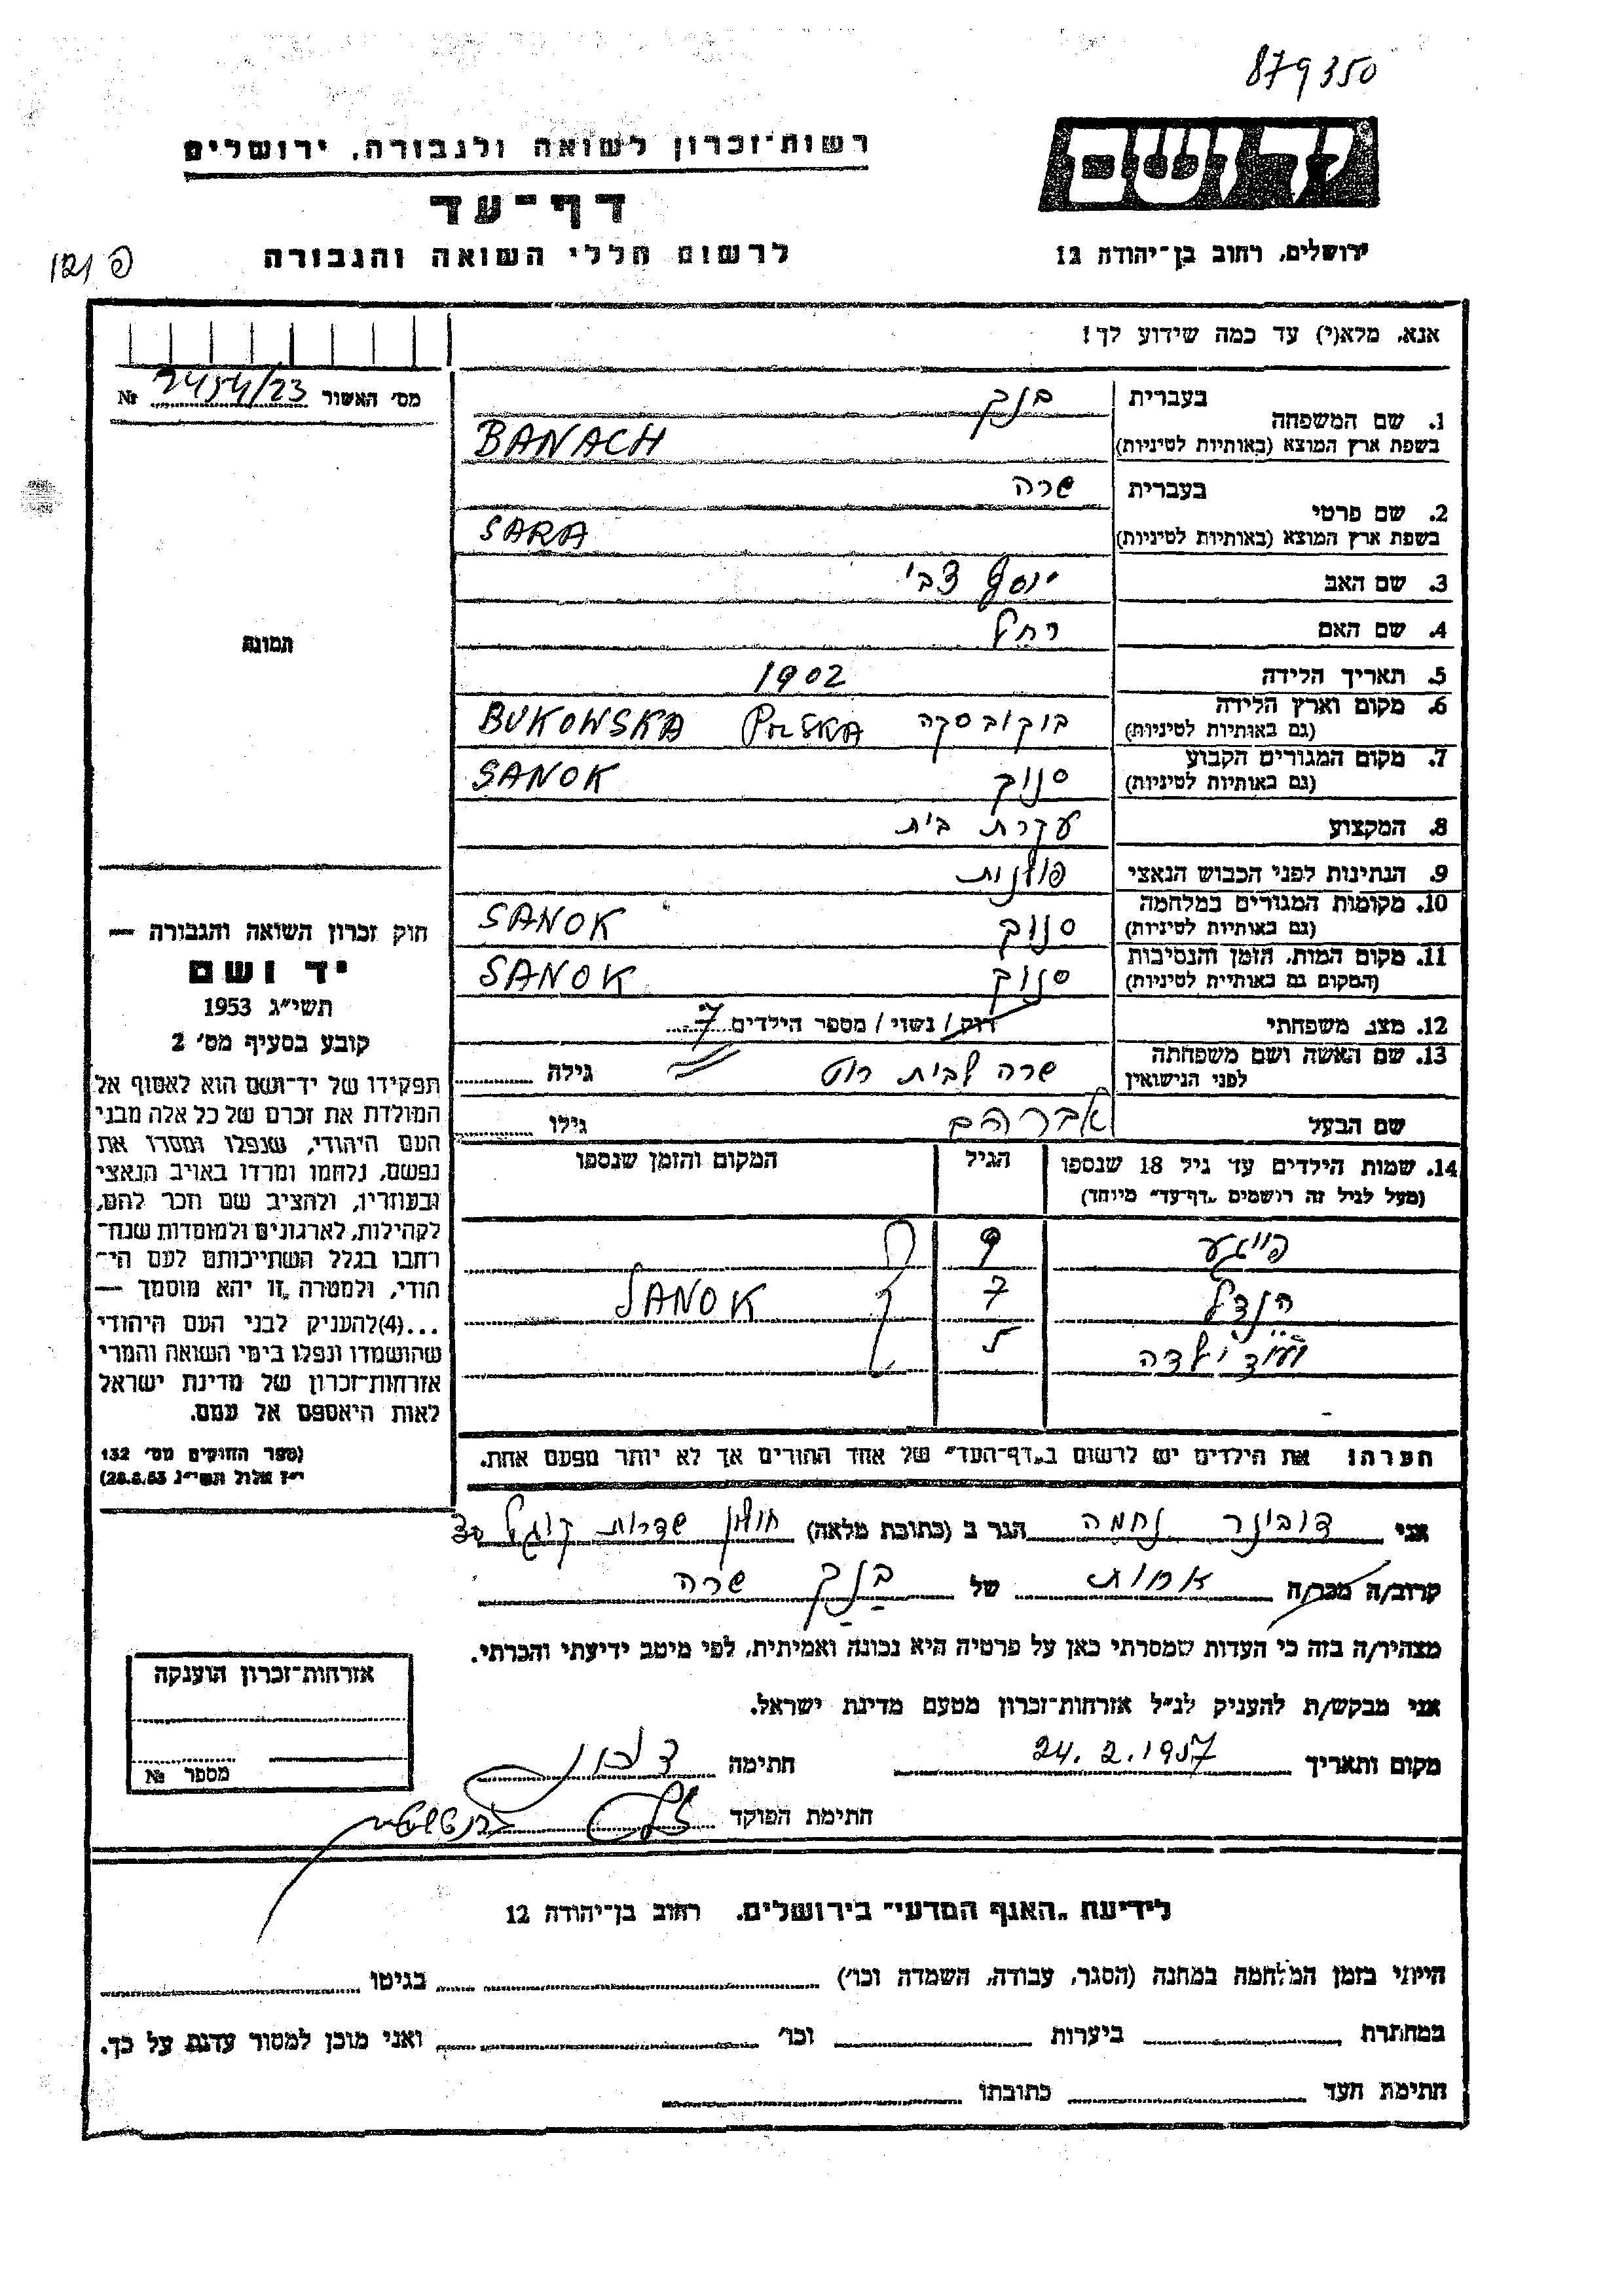 879350
יד ושם
רשות־זכרון לשואה ולגבורה, ירושלים
דף־עד
לרשום חללי השואה והגבורה
ירושלים, רחוב בן־יהודה 12
פ 121
אנא, מלא(י) עד כמה שידוע לך!
מס' האשור 2454/23 №
1. שם המשפחה
בעברית בנק
בשפת ארץ המוצא (באותיות לטיניות) BANACH
2. שם פרטי
בעברית שרה
בשפת ארץ המוצא (באותיות לטיניות) SARA
3. שם האב יוסף צבי
4. שם האם רחל
5. תאריך הלידה 1902
6. מקום וארץ הלידה (גם באותיות לטיניות) בוקובסקה POLSKA BUKOWSKA
7. מקום המגורים הקבוע (גם באותיות לטיניות) סנוק SANOK
8. המקצוע עקרת בית
9. הנתינות לפני הכבוש הנאצי פולנית
10. מקומות המגורים במלחמה (גם באותיות לטיניות) סנוק SANOK
11. מקום המות, הזמן והנסיבות (המקום גם באותיות לטיניות) סנוק SANOK
12. מצב משפחתי רווק / נשוי / מספר הילדים 7
13. שם האשה ושם משפחתה לפני הנישואין שרה לבית רוט גילה
שם הבעל אברהם גילו
14. שמות הילדים עד גיל 18 שנספו
(מעל לגיל זה רושמים "דף־עד" מיוחד)
הגיל
המקום והזמן שנספו
פייגע 9
הנדל 7 SANOK
ועוד ילדה 5
הערה: את הילדים יש לרשום ב"דף־העד" של אחד ההורים אך לא יותר מפעם אחת.
תמונה
חוק זכרון השואה והגבורה —
יד ושם
תשי"ג 1953
קובע בסעיף מס' 2
תפקידו של יד־ושם הוא לאסוף אל
המולדת את זכרם של כל אלה מבני
העם היהודי, שנפלו ומסרו את
נפשם, נלחמו ומרדו באויב הנאצי
ובעוזריו, ולהציב שם וזכר להם,
לקהילות, לארגונים ולמוסדות שנח־
רבו בגלל השתייכותם לעם הי־
הודי, ולמטרה זו יהא מוסמך —
...(4)להעניק לבני העם היהודי
שהושמדו ונפלו בימי השואה והמרי
אזרחות־זכרון של מדינת ישראל
לאות היאספם אל עמם.
(ספר החוקים מס' 132
י"ז אלול תשי"ג 28.8.53)
אני דובינר נחמה הגר ב (כתובת מלאה) חולון שדרות קוגל
קרוב/ה מכר/ה אחות של בנק שרה
מצהיר/ה בזה כי העדות שמסרתי כאן על פרטיה היא נכונה ואמיתית, לפי מיטב ידיעתי והכרתי.
אני מבקש/ת להעניק לנ"ל אזרחות־זכרון מטעם מדינת ישראל.
מקום ותאריך 24.2.1957 חתימה
חתימת הפוקד
אזרחות־זכרון הוענקה
מספר №
לידיעת "האגף המדעי" בירושלים, רחוב בן־יהודה 12
הייתי בזמן המלחמה במחנה (הסגר, עבודה, השמדה וכו') בגיטו
במחתרת ביערות וכו' ואני מוכן למסור עדות על כך.
חתימת העד כתובתו